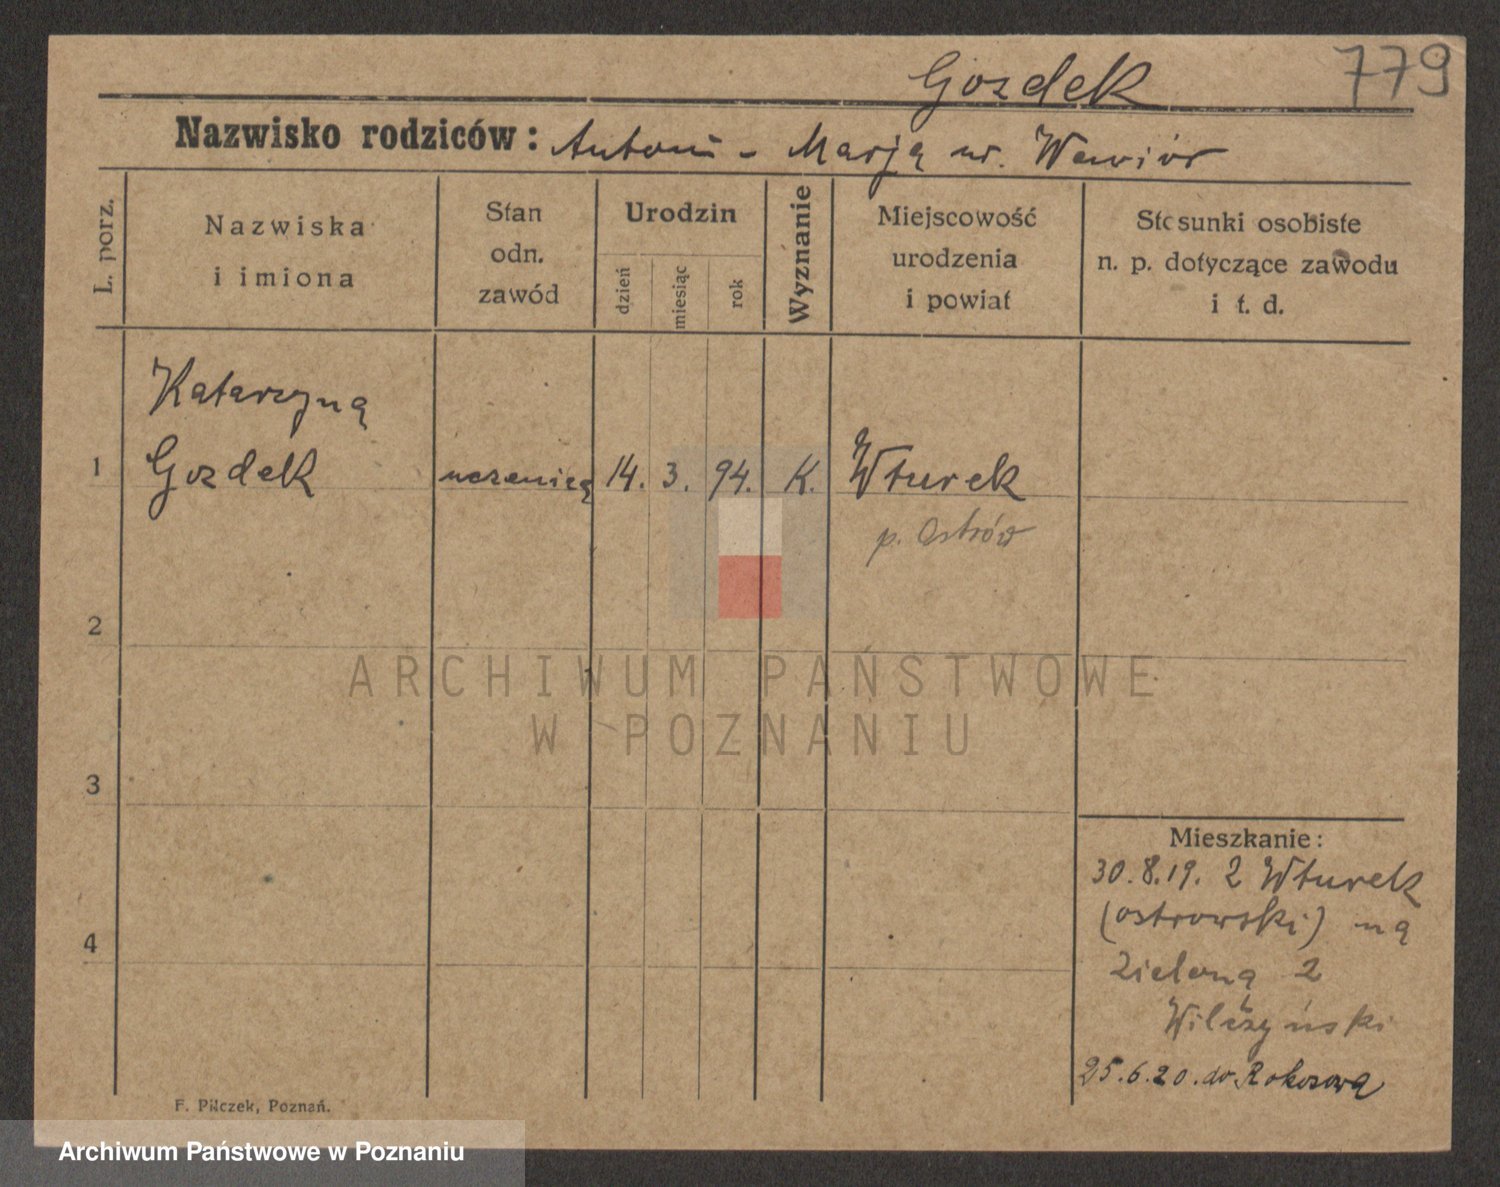 Gozdek
779
Nazwisko rodziców: Antoni - Marja ur. Wawiór
L. porz.
Nazwiska
i imiona
Stan
odn.
zawód
Urodzin
dzień
miesiąc
rok
Wyznanie
Miejscowość
urodzenia
i powiat
Stosunki osobiste
n. p. dotyczące zawodu
i t. d.
Katarzyna
1 Gozdek uczenica 14. 3. 94. K. Wturek
p. Ostrów
2
3
4
ARCHIWUM PAŃSTWOWE
W POZNANIU
Mieszkanie:
30.8.19. z Wturek
(ostrowski) na
Zielona 2
Wilczyński
25.6.20. do Rokosowa
F. Pilczek, Poznań.
Archiwum Państwowe w Poznaniu